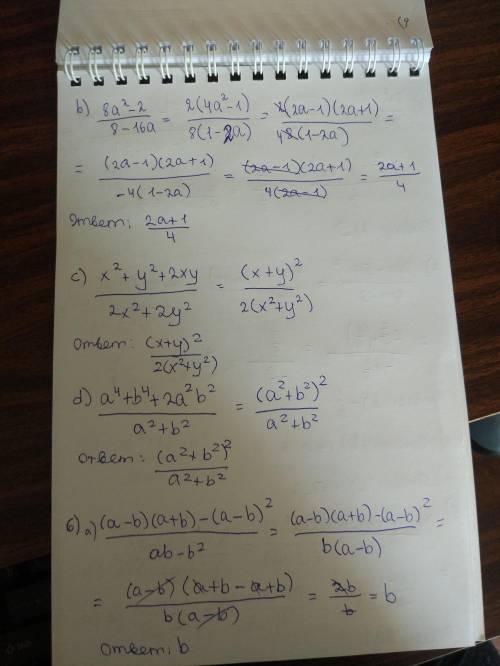 b) (8a²-2)/(8-16a) = 2(4a²-1)/8(1-2a) = 2(2a-1)(2a+1)/48(1-2a) =
= (2a-1)(2a+1)/-4(1-2a) = (2a-1)(2a+1)/4(2a-1) = (2a+1)/4
Ответ: (2a+1)/4
c) (x²+y²+2xy)/(2x²+2y²) = (x+y)²/2(x²+y²)
Ответ: (x+y)²/2(x²+y²)
d) (a⁴+b⁴+2a²b²)/(a²+b²) = (a²+b²)²/(a²+b²)
ответ: (a²+b²)²/(a²+b²)
6) a) ((a-b)(a+b)-(a-b)²)/(ab-b²) = ((a-b)(a+b)-(a-b)²)/b(a-b) =
= (a-b)(a+b-a+b)/b(a-b) = 2b/b = b
Ответ: b